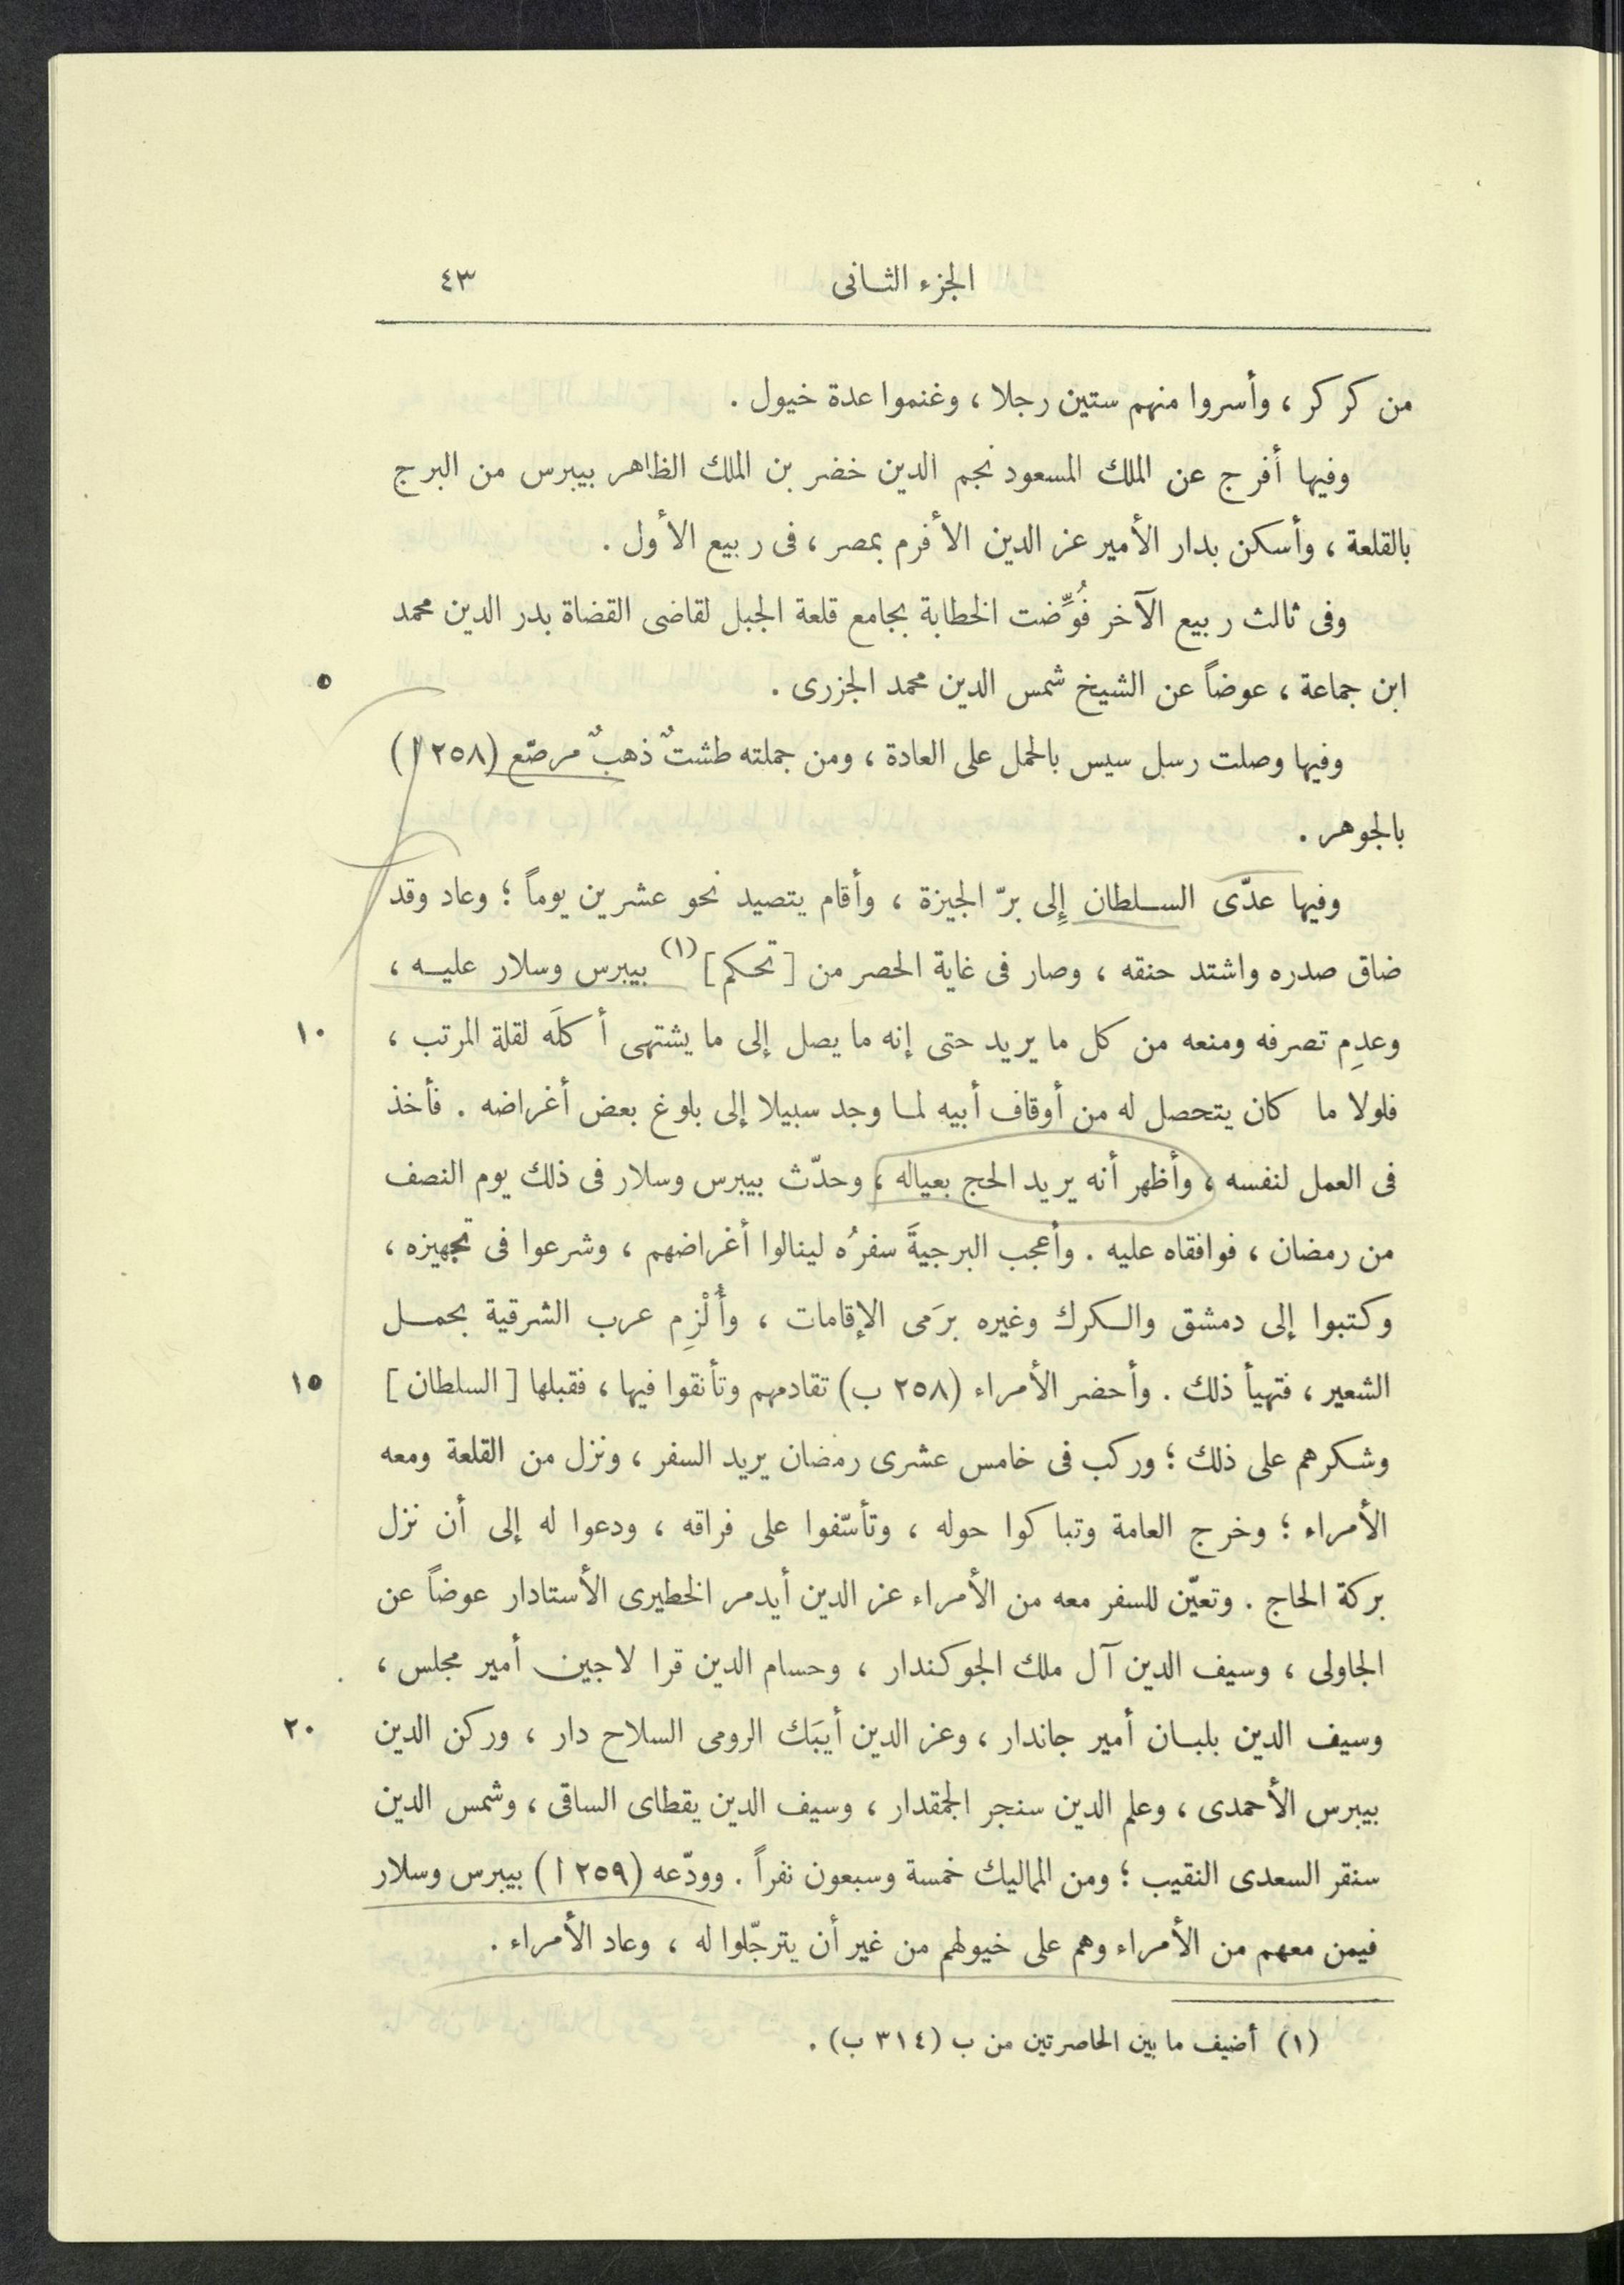 الجزء الثانى ٤٣
من كركر ، وأسروا منهم ستين رجلا ، وغنموا عدة خيول .
وفيها أفرج عن الملك المسعود نجم الدين خضر بن الملك الظاهر بيبرس من البرج
بالقلعة ، وأسكن بدار الأمير عز الدين الأفرم بمصر ، فى ربيع الأول .
وفى ثالث ربيع الآخر فُوِّضت الخطابة بجامع قلعة الجبل لقاضى القضاة بدر الدين محمد
ابن جماعة ، عوضاً عن الشيخ شمس الدين محمد الجزرى . ٥
وفيها وصلت رسل سيس بالحمل على العادة ، ومن جملته طشتٌ ذهبٌ مرصّع (٢٥٨ ا)
بالجوهر .
وفيها عدّى السلطان إلى برّ الجيزة ، وأقام يتصيد نحو عشرين يوماً ؛ وعاد وقد
ضاق صدره واشتد حنقه ، وصار فى غاية الحصر من [تحكم] (١) بيبرس وسلار عليه ،
وعدِم تصرفه ومنعه من كل ما يريد حتى إنه ما يصل إلى ما يشتهى أكلَه لقلة المرتب ، ١٠
فلولا ما كان يتحصل له من أوقاف أبيه لما وجد سبيلا إلى بلوغ بعض أغراضه . فأخذ
فى العمل لنفسه ، وأظهر أنه يريد الحج بعياله ، وحدّث بيبرس وسلار فى ذلك يوم النصف
من رمضان ، فوافقاه عليه . وأعجب البرجيةَ سفرُه لينالوا أغراضهم ، وشرعوا فى تجهيزه ،
وكتبوا إلى دمشق والكرك وغيره برَمى الإقامات ، وأُلْزِم عرب الشرقية بحمل
الشعير ، فتهيأ ذلك . وأحضر الأمراء (٢٥٨ ب) تقادمهم وتأنقوا فيها ، فقبلها [السلطان] ١٥
وشكرهم على ذلك ؛ وركب فى خامس عشرى رمضان يريد السفر ، ونزل من القلعة ومعه
الأمراء ؛ وخرج العامة وتباكوا حوله ، وتأسّفوا على فراقه ، ودعوا له إلى أن نزل
بركة الحاج . وتعيّن للسفر معه من الأمراء عز الدين أيدمر الخطيرى الأستادار عوضاً عن
الجاولى ، وسيف الدين آل ملك الجوكندار ، وحسام الدين قرا لاجين أمير مجلس ،
وسيف الدين بلبان أمير جاندار ، وعز الدين أيبَك الرومى السلاح دار ، وركن الدين ٢٠
بيبرس الأحمدى ، وعلم الدين سنجر الجمقدار ، وسيف الدين يقطاى الساقى ، وشمس الدين
سنقر السعدى النقيب ؛ ومن المماليك خمسة وسبعون نفراً . وودّعه (٢٥٩ ا) بيبرس وسلار
فيمن معهم من الأمراء وهم على خيولهم من غير أن يترجّلوا له ، وعاد الأمراء .
(١) أضيف ما بين الحاصرتين من ب (٣١٤ ب) .